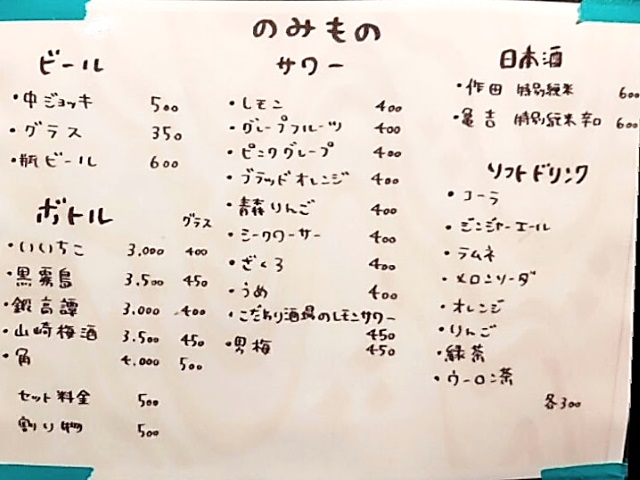 のみもの
ビール
・中ジョッキ 500
・グラス 350
・瓶ビール 600
ボトル グラス
・いいちこ 3.000 400
・黒霧島 3.500 450
・鍛高譚 3.000 400
・山崎梅酒 3.500 450
・角 4.000 500
セット料金 500
割り物 500
サワー
・レモン 400
・グレープフルーツ 400
・ピンクグレープ 400
・ブラッドオレンジ 400
・青森りんご 400
・シークワーサー 400
・ざくろ 400
・うめ 400
・こだわり酒場のレモンサワー
450
・男梅 450
日本酒
・作田 特別純米 600
・亀吉 特別純米辛口 600
ソフトドリンク
・コーラ
・ジンジャーエール
・ラムネ
・メロンソーダ
・オレンジ
・りんご
・緑茶
・ウーロン茶
各300